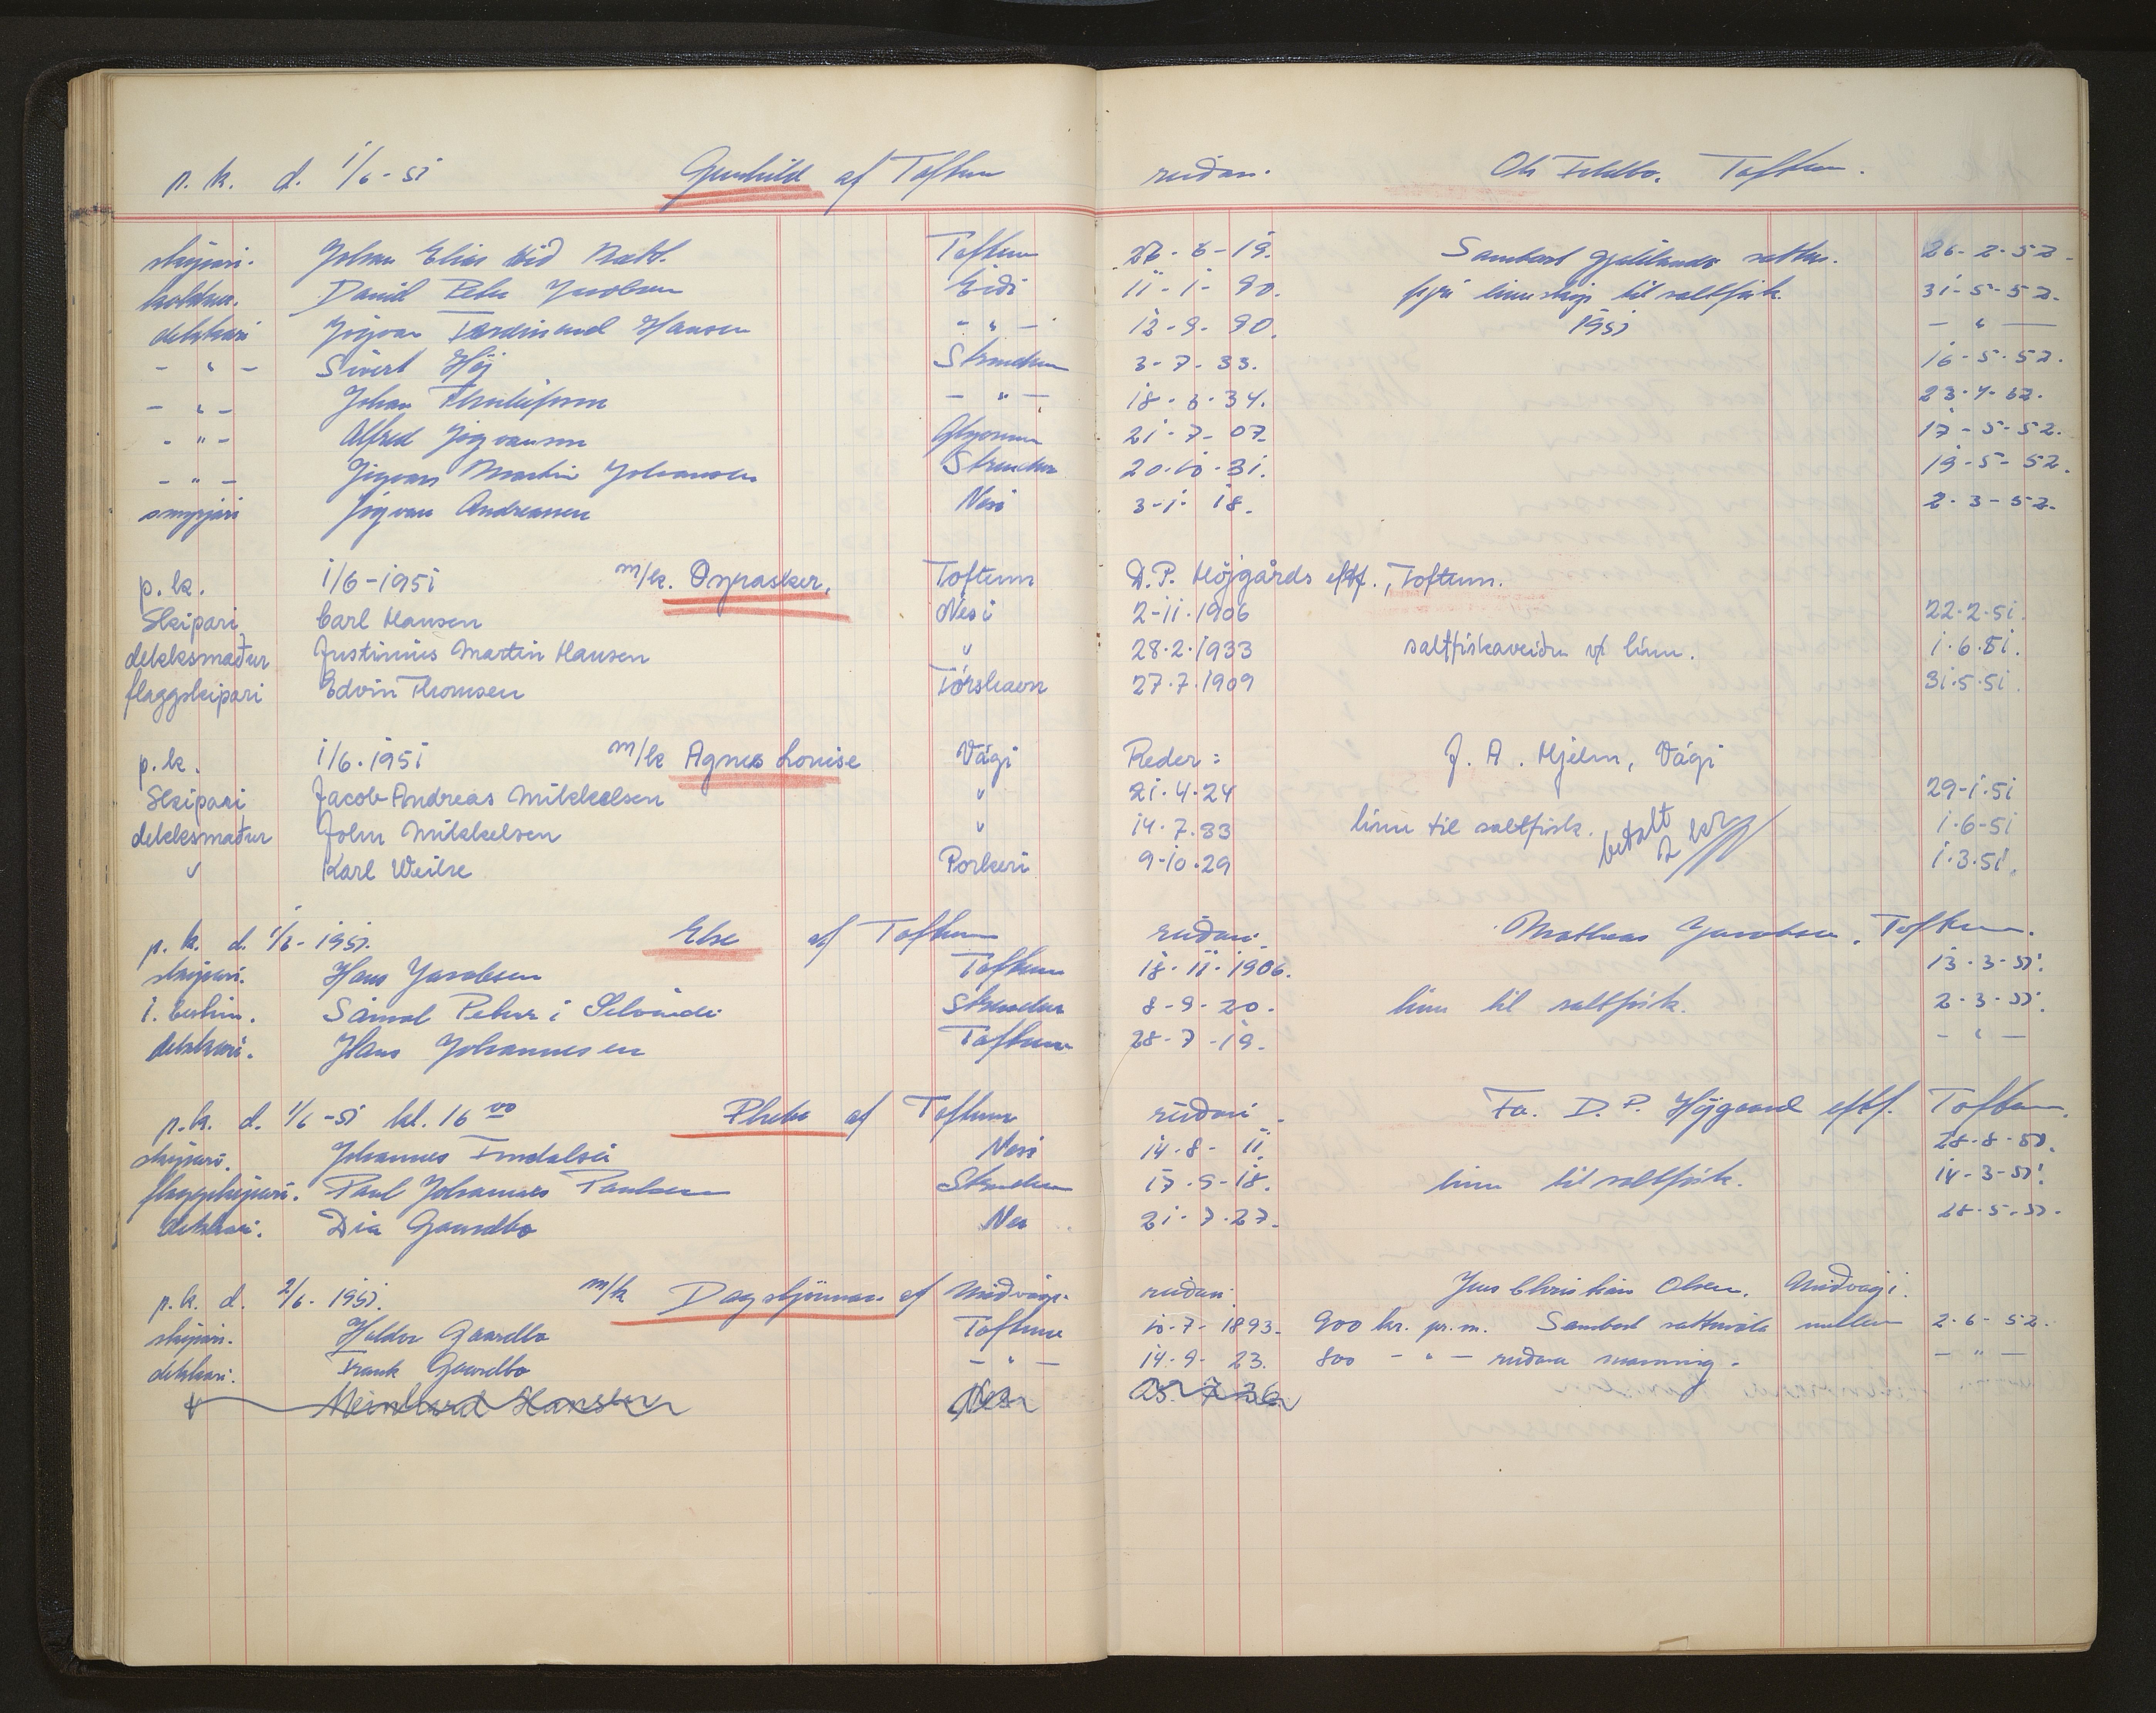 p. k. d. 1/6-51 Gunhild af Toftum reiðari. Ole Feldbo. Toftum.
skipari. Johan Elias Toftum 26-2-52
Daniel Peter Jacobsen Eiði 11-1-90. fyri línuskip til saltfisk. 31-5-52.
dekkari Jógvan Ferdinand Hansen - " - 12-9-90. 1951 - " -
- " - Sivert Høj Strendur 3-7-33. 16-5-52.
- " - Johan - " - 18-3-34.
- " - Alfred Jógvansson 21-7-07. 17-5-52.
- " - Jógvan Martin Johansen Strendur 20-10-31. 19-5-52.
smyrjari Jógvan Andreasen Nesi 3-1-18. 2-3-52.
p.k. 1/6-1951 m/k. Oyrasker, Toftum D.P. Højgårds eftf., Toftum.
Skipari Carl Hansen Nesi 2-11-1906 22-2-51.
dekksmaður Justinius Martin Hansen " 28-2-1933 saltfiskaveiðu v/ línu. 1-6-51.
flaggskipari Edvin Thomsen Tórshavn 27-7-1909 31-5-51.
p.k. 1/6-1951 m/k Agnes Louise Vági Reder: J. A. Hjelm, Vági
Skipari Jacob Andreas Mikkelsen " 21-4-24 29-1-51
dekksmaður John Mikkelsen " 14-7-33 línu til saltfisk. betalt 2 kr 1-6-51
" Karl Weihe Porkeri 9-10-29 1-3-51.
p. k. d. 1/6-1951. Else af Toftum reiðari. Mathias Jacobsen, Toftum.
skipari. Hans Jacobsen Toftum 18-11-1906. 13-3-51.
Sámal Petur í Strendur 8-9-20. línu til saltfisk. 2-3-51.
dekkari. Hans Johannesen Toftum 28-7-19. - " -
p.k. d. 1/6-51 kl. 16 00 Phebe af Toftum reiðari. Fa. D. P. Højgaard eftf. Toftum.
skipari. Johannes Nesi 14-8-11.
flaggskipari. Paul Johannes Poulsen Strendur 17-9-18. línu til saltfisk. 14-3-51.
dekkari. Dia Gaardbo Nes 21-7-27.
p.k. d. 2/6-1951. m/k Dagstjørnan af Miðvági. reiðari. Jens Christian Olsen, Miðvági.
skipari. Haldor Gaardbo Toftum 10-7-1893. 900 kr. pr. m. Sambært 2-6-52.
dekkari. Frank Gaardbo - " - 14-9-23. 800 - " - - " -
Meinhard Hansen Nesi 25-7-36